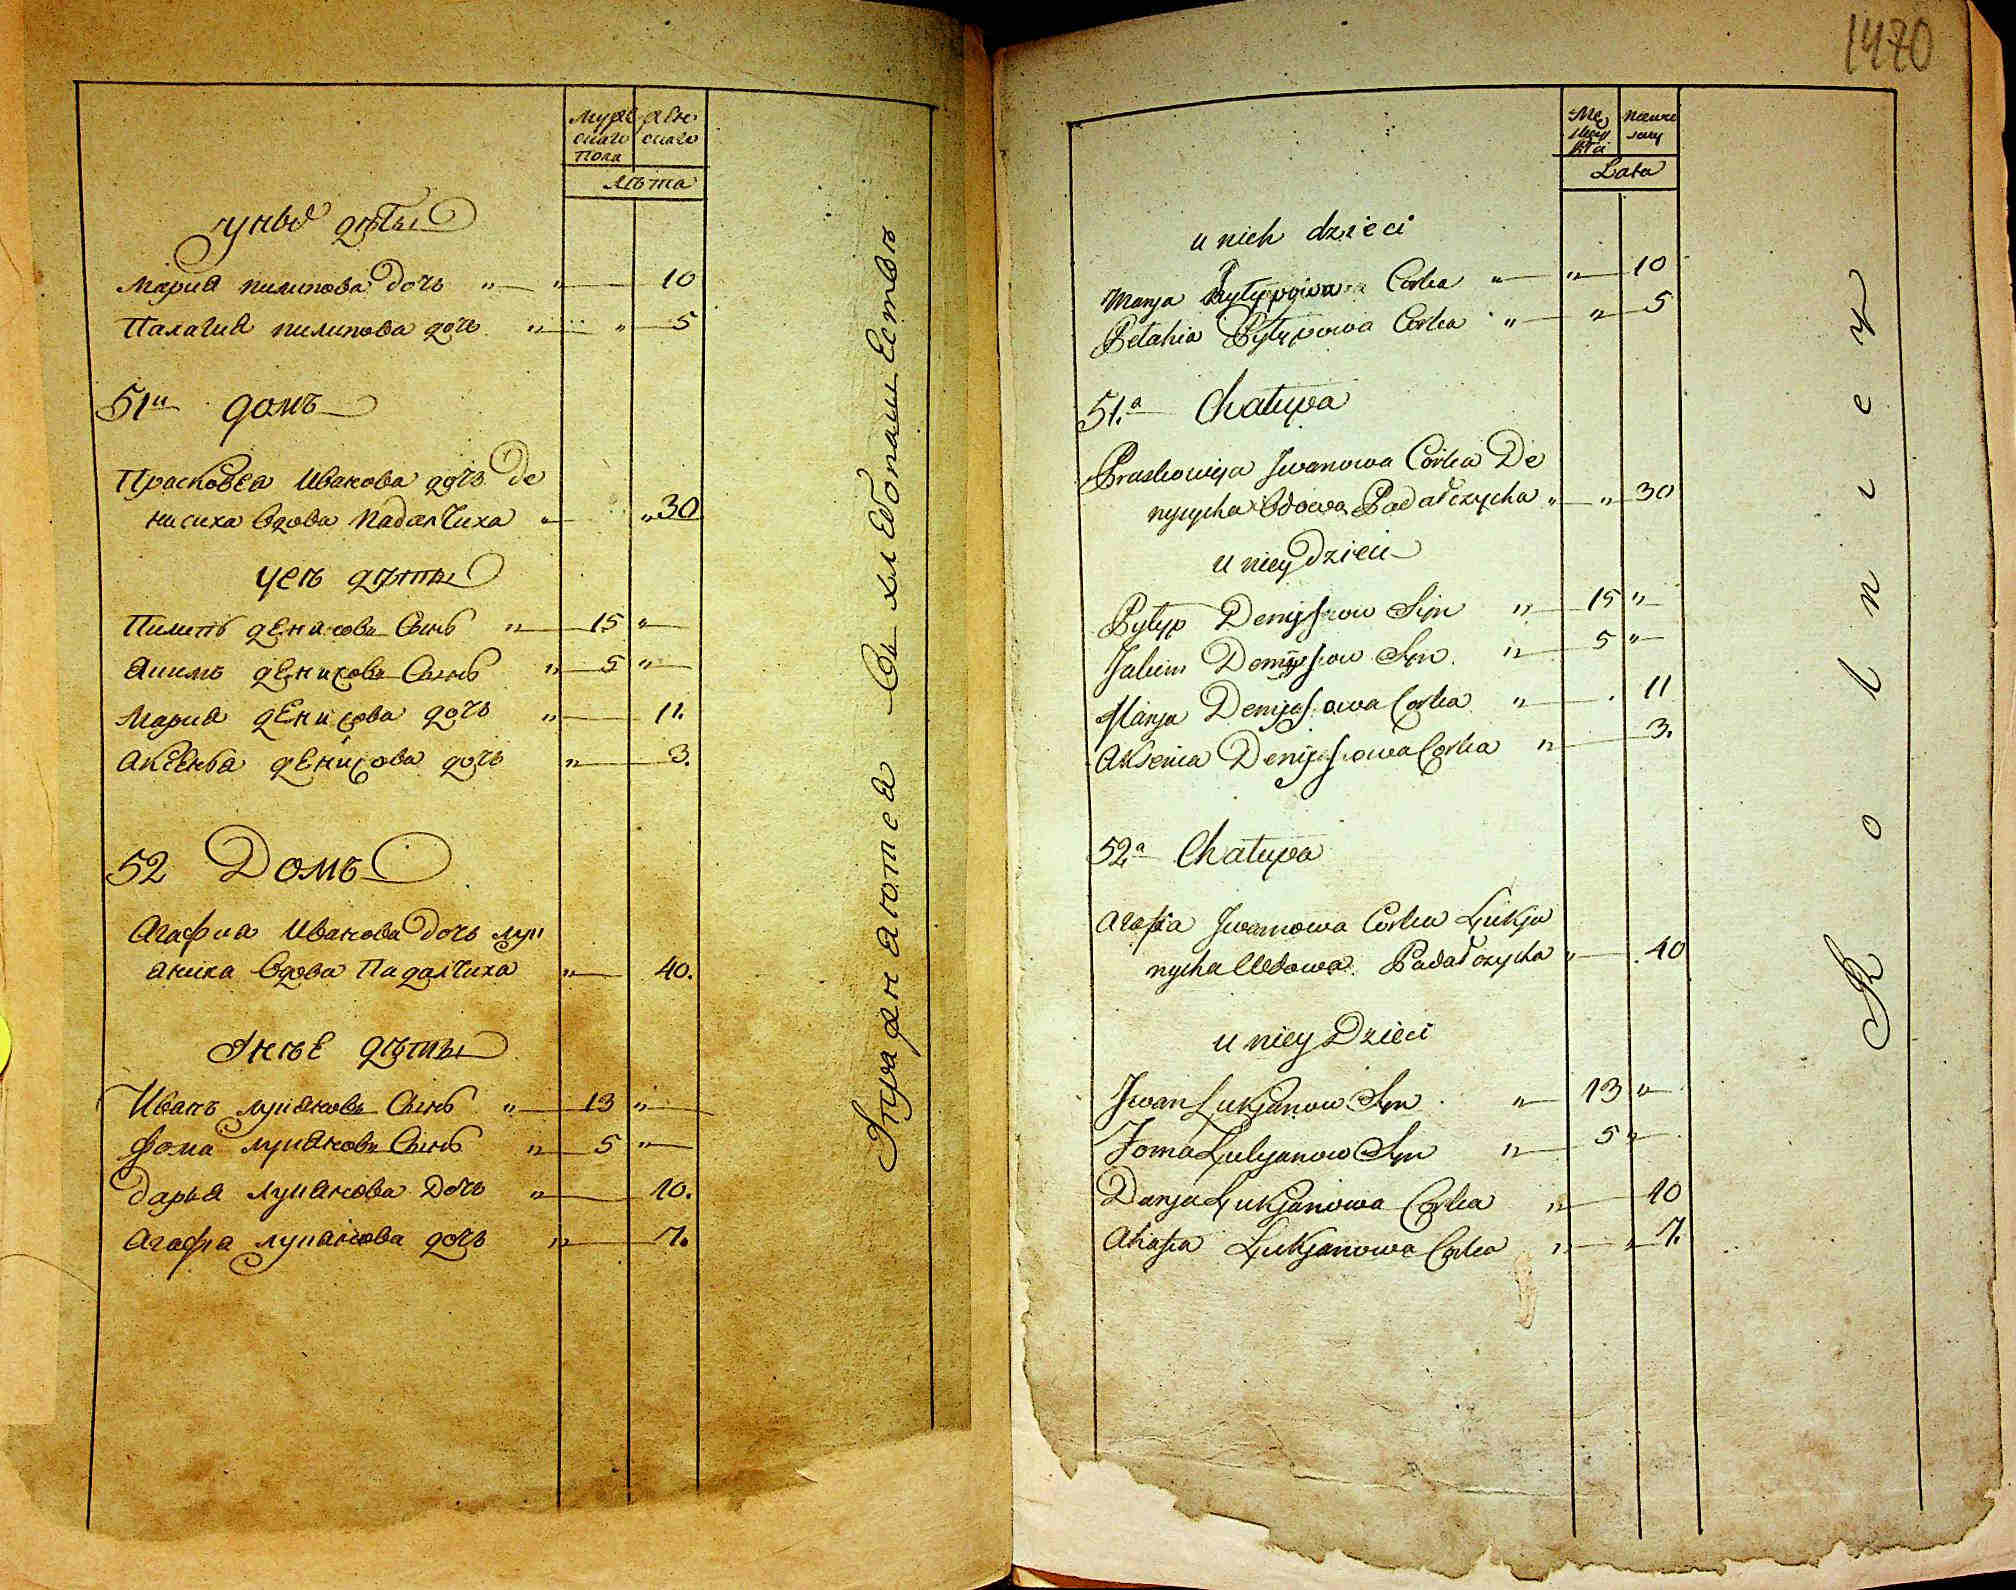 мужескаго пола
женскаго
лѣта
унихъ дѣты
Мария пилипова дочь " " 10
Палагия пилипова дочь " " 5
51й домъ
Прасковея Иванова дочь де
нисиха вдова Падалчиха " " 30
унеѣ дѣты
Пилипъ денисовъ Сынъ " 15 "
Якимъ денисовъ Сынъ " 5 "
Мария денисова дочь " 11.
Аксенья денисова дочь " 3.
52 Домъ
Агафия Иванова дочь лук
яниха вдова Падалчиха " 40.
унеѣ дѣты
Иванъ лукяновъ Сынъ " 13 "
фома лукяновъ Сынъ " 5 "
дарья лукянова Дочь " 10.
Агафia лукянова дочь " 7.
Упражняютса въ хлѣбопашествѣ
1470
Lata
u nich dzieci
Marya Pyłypowa Corka " " 10
Pelahia Pyłypowa Corka " " 5
51.a Chałupa
Praskowija Jwanowa Corka De
nysycha Wdowa Padałczycha " " 30
u niey Dzieci
Pyłyp Denysow Syn " 15 "
Jakim Denysow Syn " 5 "
Marya Denysowa Corka " 11
Aksenia Denysowa Corka " 3.
52a Chałupa
Agafia Jwanowa Corka Łukja
nycha Wdowa Padałczycha " 40
u niey Dzieci
Jwan Łukjanow Syn " 13 "
Foma Łukjanow Syn " 5 "
Darya Łukjanowa Corka " 10
Ahafia Łukjanowa Corka " " 7.
Rolnicy